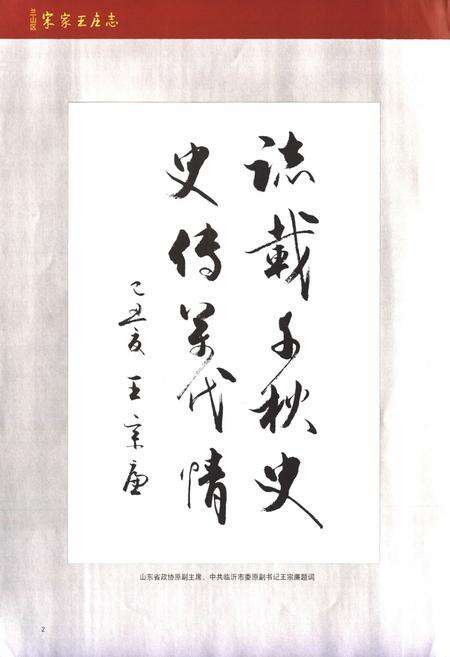 兰山区 宋家王庄志
誌載千秋史
史传万代情
己丑夏 王宗廉
山东省政协原副主席、中共临沂市委原副书记王宗廉题词
2